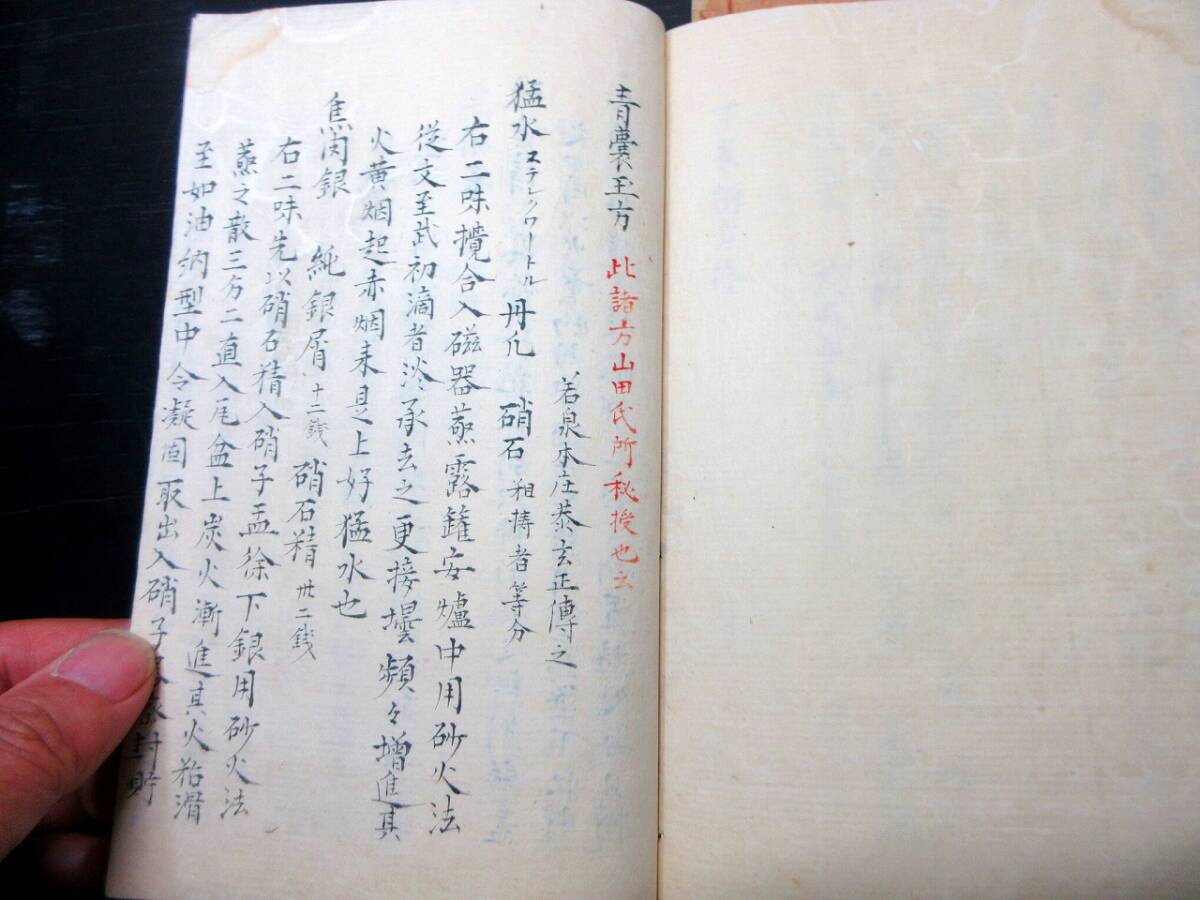 青嚢玉方 此諸方山田氏所秘授也云
若泉本庄恭玄正傳之
猛水 ステレクワートル 丹凢 硝石 等分
右二味攪合入磁器蒸露鑵安爐中用砂火法
従文至武初滴者淡承去之更接壜頻々増進其
火黄烟起赤烟来是上好猛水也
焦肉銀 純銀屑 十二銭 硝石精 卅二銭
右二味先以硝石精入硝子盂徐下銀用砂火法
蒸之散三分二直入尾盆上炭火漸進其火粘滑
至如油納型中令凝固取出入硝子 封貯